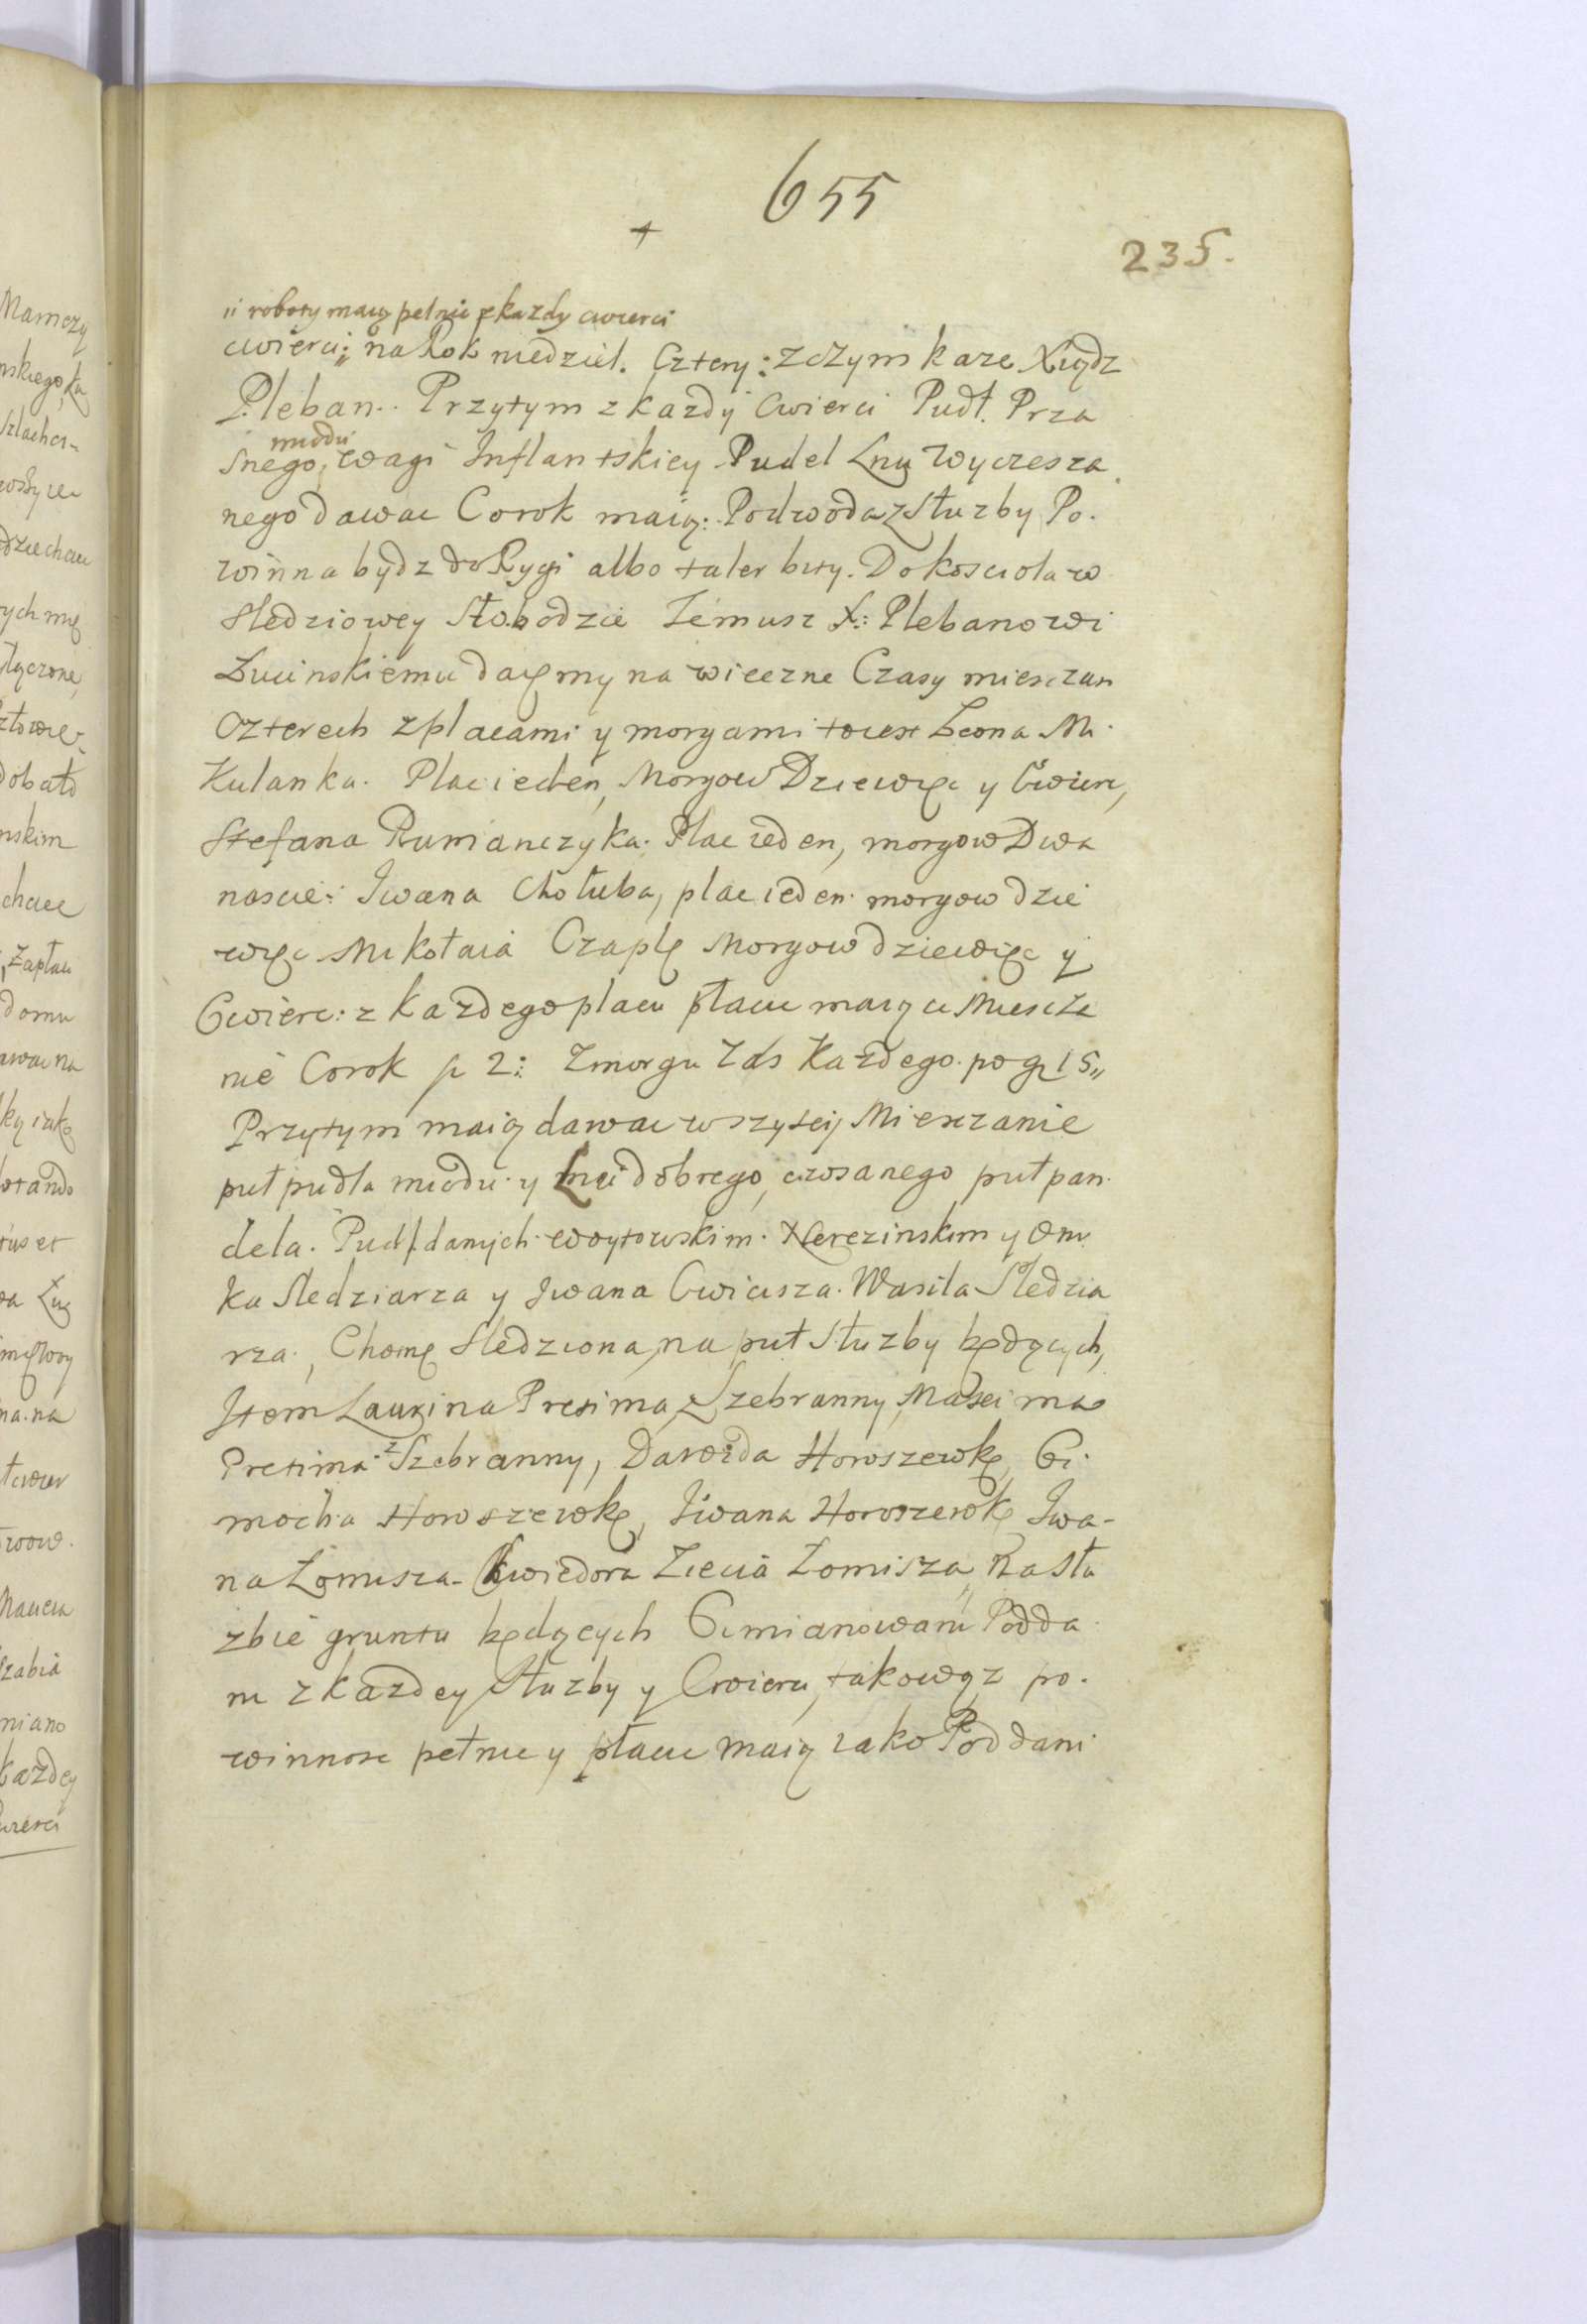 655
235.
ıı roboty maią pełnic z kazdy cwierci
cwierci;; na Rok niedziel. Cztery: z czym kaze Xiądz
Pleban. Przytym z kazdy Cwierci Pudł. Prza
miodu
snego, wagi Inflantskiey Pudel Lnu Wyczesza
nego dawac Corok maią: Podwoda z Służby Po.
winna bydz do Rygi albo taler bity. Do kosciola w
Sledziowey Słobodzie Temusz X: Plebanowi
Lucinskiemu daięmy na wieczne Czasy mieszczan
Czterech z placami y morgami toiest Leona Mi
Kulanka. Plac ieden, Morgow Dziewięc y Cwierc,
Stefana Rumianczyka. Plac ieden, morgow Dwa
nascie: Iwana Chołuba, plac ieden morgow dzie
więc Mikołaia Czaplę Morgow dziewięc y
Cwierc: z kazdego placu płacic maią ci Miescza
nie Corok fl 2: Zmorgu zas Kazdego po gr 15„
Przytym maią dawac wszytcy Miesczanie
puł pudła miodu y Lnu dobrego, czosanego puł pan
dela. Poddanych. Woytowskim. Nerezinskim y Om
ka Sledziarza y Iwana Cwicisza. Wasila Sledzia
rza, Chomę Sledziona, na puł Służby będących,
Item Laurina Presima z Szebranny, Masei ma
Presima z Szebranny, Dawida Horoszewkę, Ti
mocha Horoszewkę, Iwana Horoszewkę Iwa-
na Łomisza. Chwiedora Ziecia Łomisza, Na Słu
zbie gruntu będących Ci mianowani Podda
ni z kazdey Służby y Cwierci, takowąz po.
winnosc pełnic y płacic maią iako Poddani